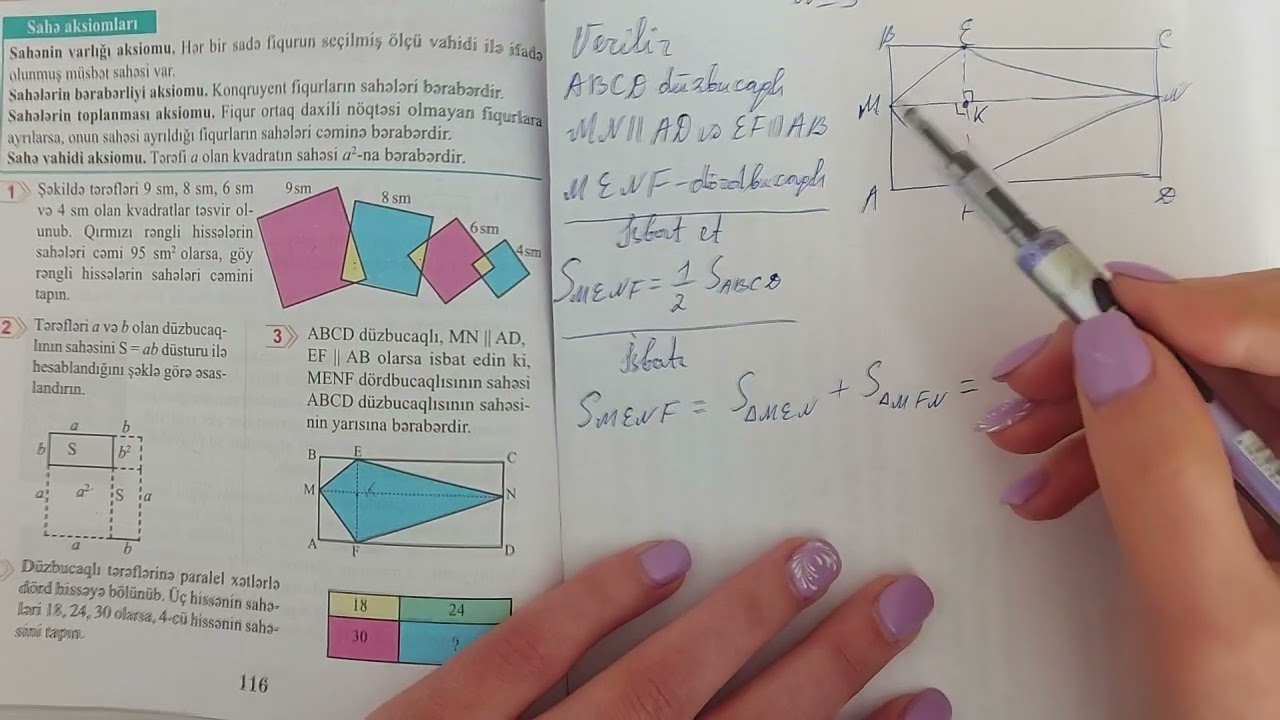 Sahə aksiomları
Sahənin varlığı aksiomu. Hər bir sadə fiqurun seçilmiş ölçü vahidi ilə ifadə
olunmuş müsbət sahəsi var.
Sahələrin bərabərliyi aksiomu. Konqruyent fiqurların sahələri bərabərdir.
Sahələrin toplanması aksiomu. Fiqur ortaq daxili nöqtəsi olmayan fiqurlara
ayrılarsa, onun sahəsi ayrıldığı fiqurların sahələri cəminə bərabərdir.
Sahə vahidi aksiomu. Tərəfi a olan kvadratın sahəsi a²-na bərabərdir.
1 Şəkildə tərəfləri 9 sm, 8 sm, 6 sm
və 4 sm olan kvadratlar təsvir ol-
unub. Qırmızı rəngli hissələrin
sahələri cəmi 95 sm² olarsa, göy
rəngli hissələrin sahələri cəmini
tapın.
9 sm
8 sm
6 sm
4 sm
2 Tərəfləri a və b olan düzbucaq-
lının sahəsini S = ab düsturu ilə
hesablandığını şəklə görə əsas-
landırın.
a b
b S b²
a a² S a
a b
3 ABCD düzbucaqlı, MN || AD,
EF || AB olarsa isbat edin ki,
MENF dördbucaqlısının sahəsi
ABCD düzbucaqlısının sahəsi-
nin yarısına bərabərdir.
B E C
M N
A F D
Düzbucaqlı tərəflərinə paralel xətlərlə
dörd hissəyə bölünüb. Üç hissənin sahə-
ləri 18, 24, 30 olarsa, 4-cü hissənin sahə-
sini tapın.
18 24
30 ?
116
Verilir
ABCD düzbucaqlı
MN || AD və EF || AB
MENF-dördbucaqlı
İsbat et
S MENF = 1/2 S ABCD
İsbatı
S MENF = S ΔMEN + S ΔMFN =
B E C
M K N
A D